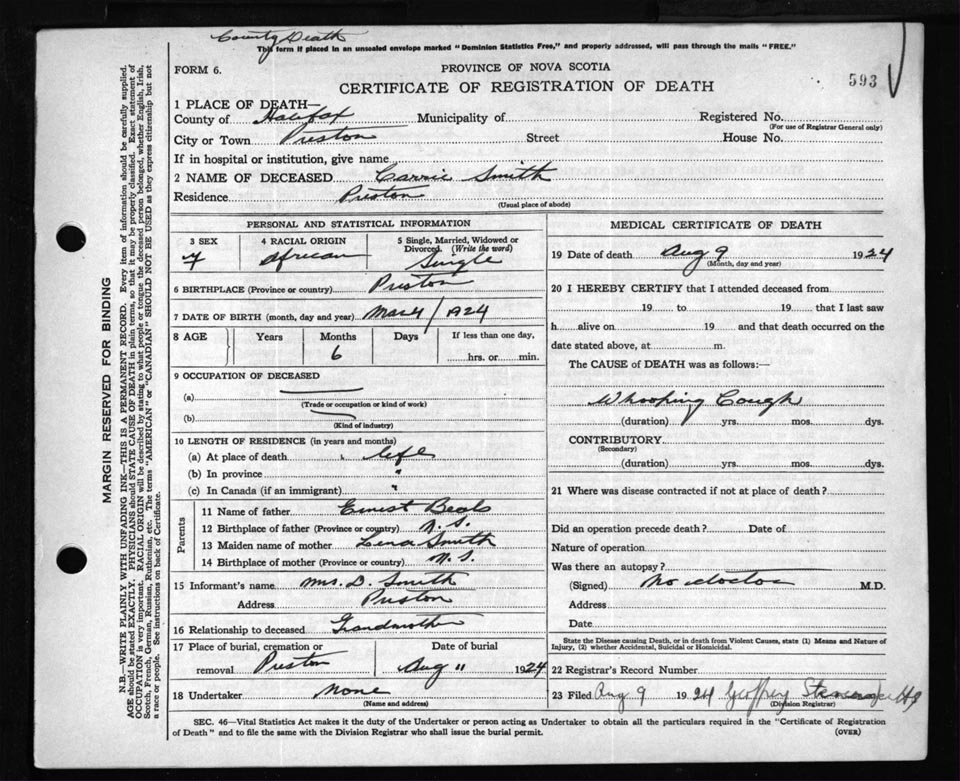 County Death
This form if placed in an unsealed envelope marked "Dominion Statistics Free," and properly addressed, will pass through the mails "FREE."
FORM 6.
PROVINCE OF NOVA SCOTIA
593
CERTIFICATE OF REGISTRATION OF DEATH
1 PLACE OF DEATH—
County of Halifax Municipality of Registered No.
(For use of Registrar General only)
City or Town Preston Street House No.
If in hospital or institution, give name
2 NAME OF DECEASED Carrie Smith
Residence Preston
(Usual place of abode)
PERSONAL AND STATISTICAL INFORMATION
3 SEX 4 RACIAL ORIGIN 5 Single, Married, Widowed or Divorced. (Write the word)
F African Single
6 BIRTHPLACE (Province or country) Preston
7 DATE OF BIRTH (month, day and year) Mar 4/1924
8 AGE Years Months Days If less than one day,
6 hrs. or min.
9 OCCUPATION OF DECEASED
(a)
(Trade or occupation or kind of work)
(b)
(Kind of industry)
10 LENGTH OF RESIDENCE (in years and months)
(a) At place of death life
(b) In province "
(c) In Canada (if an immigrant) "
Parents
11 Name of father Ernest Beals
12 Birthplace of father (Province or country) N.S.
13 Maiden name of mother Lena Smith
14 Birthplace of mother (Province or country) N.S.
15 Informant's name Mrs. D. Smith
Address Preston
16 Relationship to deceased Grandmother
17 Place of burial, cremation or Date of burial
removal Preston Aug 11 1924
18 Undertaker None
(Name and address)
MEDICAL CERTIFICATE OF DEATH
19 Date of death Aug 9 1924
(Month, day and year)
20 I HEREBY CERTIFY that I attended deceased from
19 to 19 that I last saw
h alive on 19 and that death occurred on the
date stated above, at m.
The CAUSE of DEATH was as follows:—
Whooping Cough
(duration) yrs. mos. dys.
CONTRIBUTORY
(Secondary)
(duration) yrs. mos. dys.
21 Where was disease contracted if not at place of death?
Did an operation precede death? Date of
Nature of operation
Was there an autopsy?
(Signed) No doctor M.D.
Address
Date
State the Disease causing Death, or in death from Violent Causes, state (1) Means and Nature of
Injury, (2) whether Accidental, Suicidal or Homicidal.
22 Registrar's Record Number
23 Filed Aug 9 1924 Geoffrey
(Division Registrar)
SEC. 46—Vital Statistics Act makes it the duty of the Undertaker or person acting as Undertaker to obtain all the particulars required in the "Certificate of Registration
of Death" and to file the same with the Division Registrar who shall issue the burial permit. (OVER)
MARGIN RESERVED FOR BINDING
N.B.—WRITE PLAINLY WITH UNFADING INK—THIS IS A PERMANENT RECORD. Every item of information should be carefully supplied.
AGE should be stated EXACTLY. PHYSICIANS should STATE CAUSE OF DEATH in plain terms, so that it may be properly classified. Exact statement of
OCCUPATION is very important. RACIAL ORIGIN will be described by stating to what people or tongue the deceased person belonged, whether English, Irish,
Scotch, French, German, Russian, Ruthenian, etc. The terms "AMERICAN" or "CANADIAN" SHOULD NOT BE USED as they express citizenship but not
a race or people. See instructions on back of Certificate.